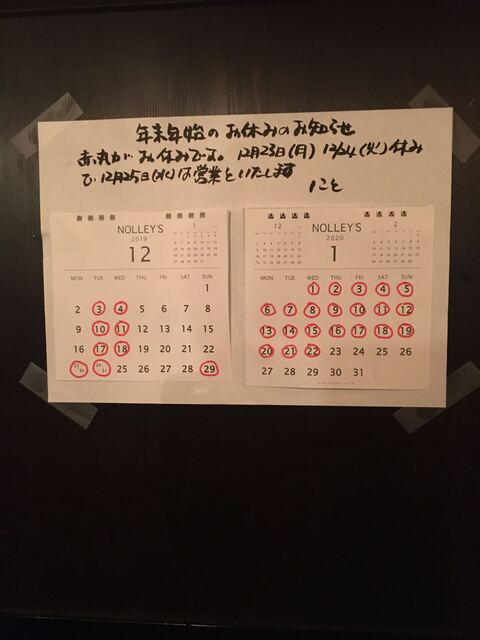 年末年始のお休みのお知らせ
赤丸がお休みです。12月23日(月) 12/24(火)休み
で12月25日(水)は営業といたします
にと
NOLLEY'S
2019
12
1
MON TUE WED THU FRI SAT SUN
1
2 3 4 5 6 7 8
9 10 11 12 13 14 15
16 17 18 19 20 21 22
23/30 24/31 25 26 27 28 29
12
NOLLEY'S
2020
1
2
MON TUE WED THU FRI SAT SUN
1 2 3 4 5
6 7 8 9 10 11 12
13 14 15 16 17 18 19
20 21 22 23 24 25 26
27 28 29 30 31